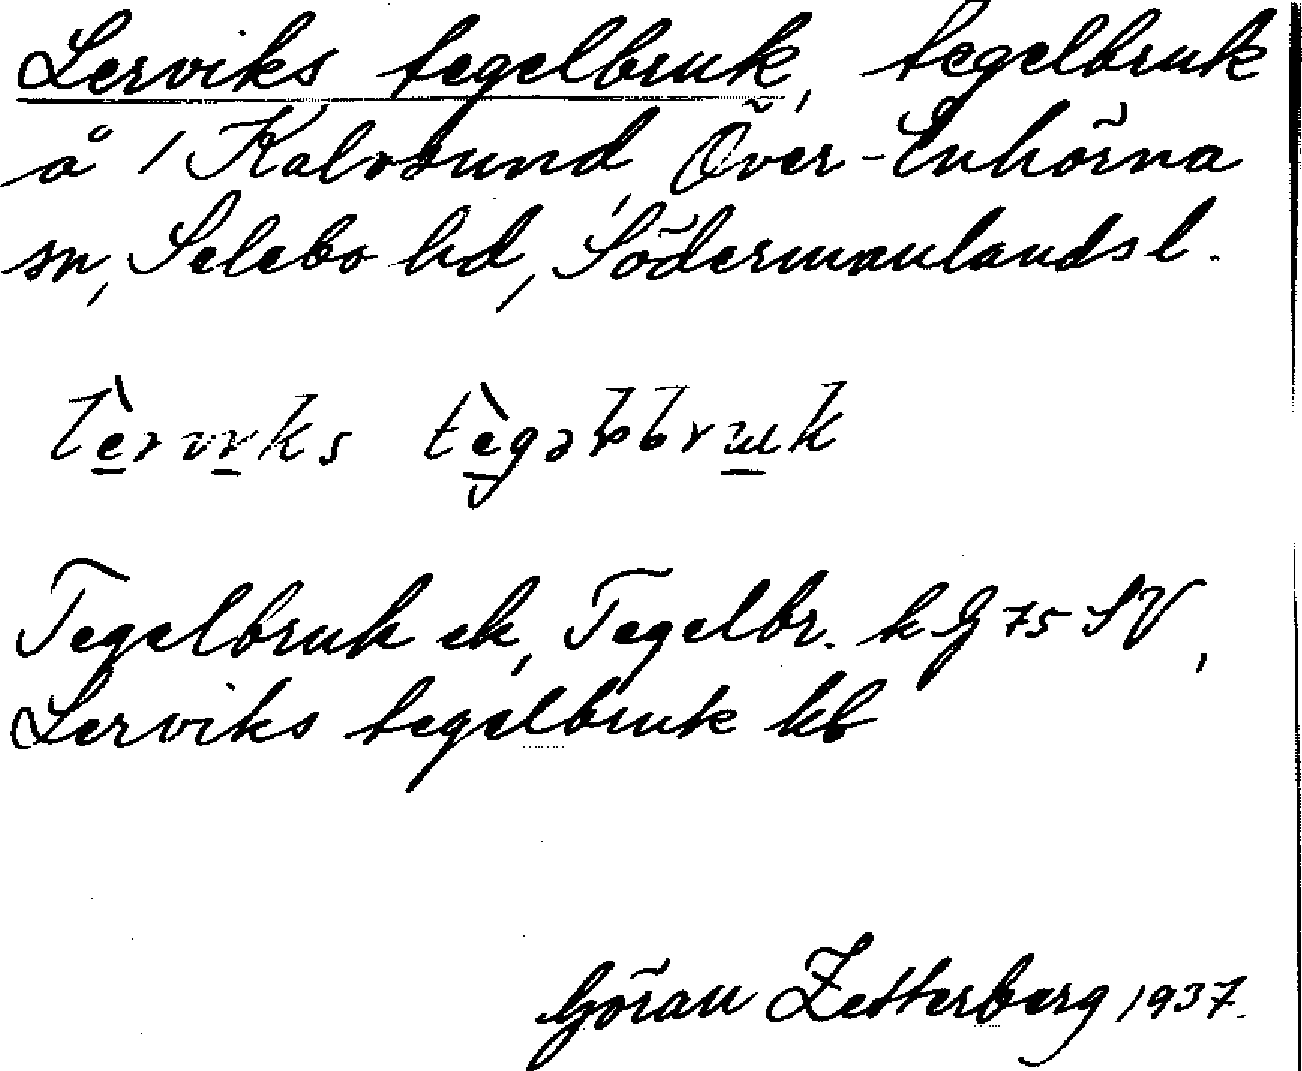 Lerviks tegelbruk, tegelbruk
å 1 Kalvsund, Över-Enhörna
sn, Selebo hd, Södermanlands l.
Tegelbruk ek, Tegelbr. k G 75 SV,
Lerviks tegelbruk kb
Göran Zetterberg 1937.